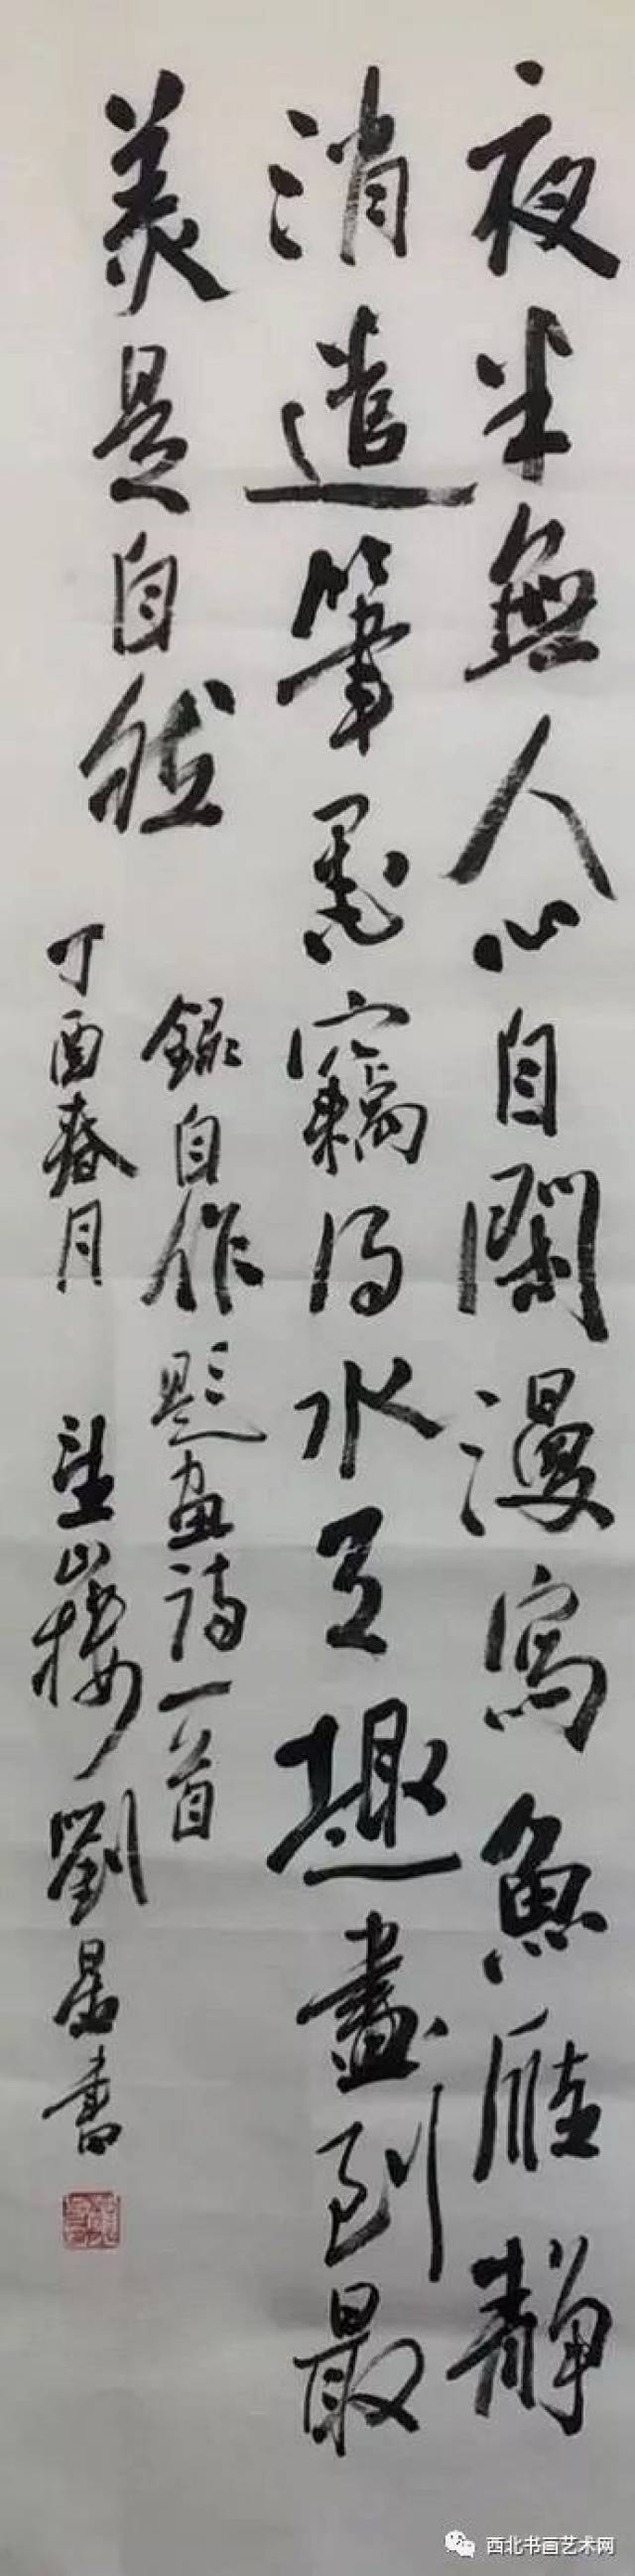 夜半無人心自闌漫寫魚雁靜
消遣筆墨竊得水互趣畫到最
美是自然
錄自作題画詩一首
丁酉春月 望山樓劉昌書
西北书画艺术网